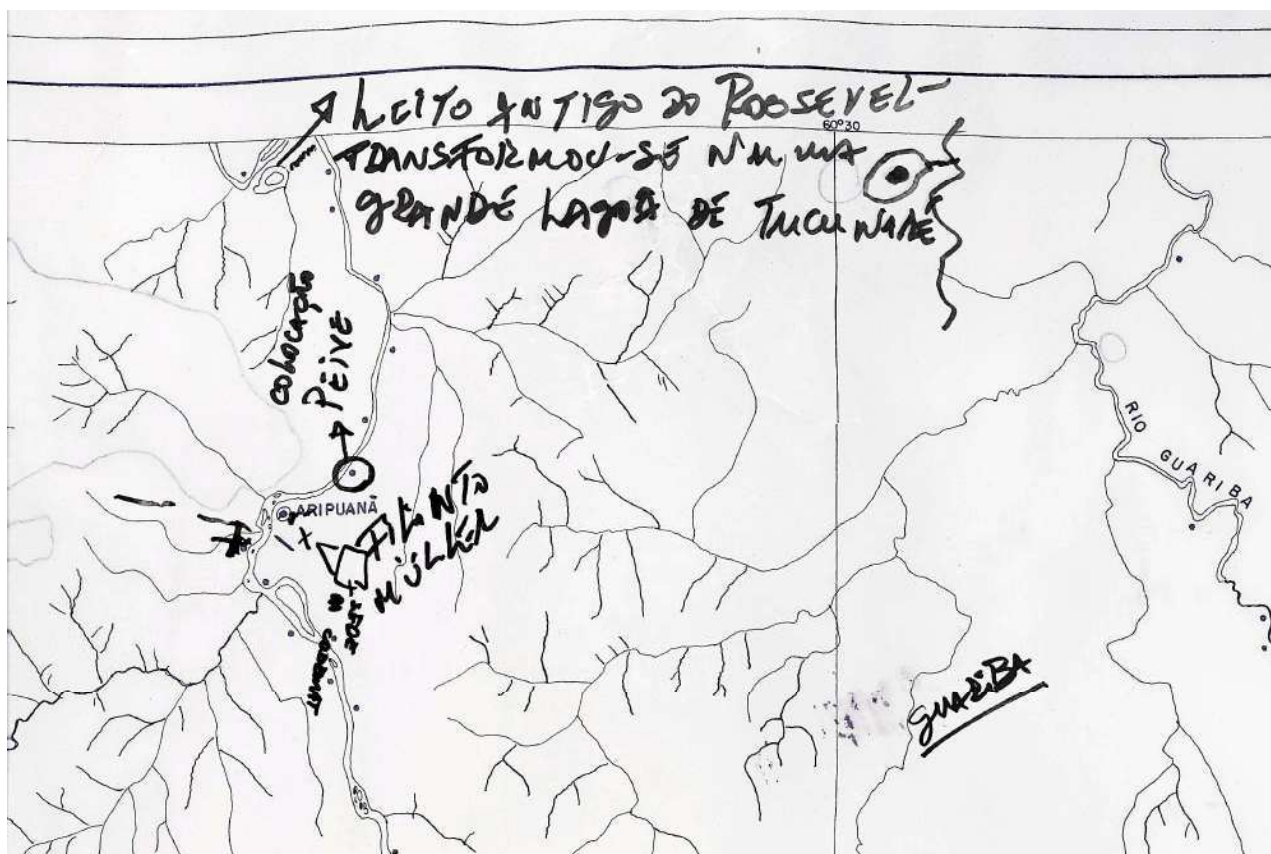 LEITO ANTIGO DO ROOSEVEL-
60º30
TRANSFORMOU-SE NUMA
GRANDE LAGOA DE TUCUNARÉ
COLOCAÇÃO
PEIVE
ARIPUANÃ
FILINTO
MÜLLER
RIO GUARIBA
GUARIBA